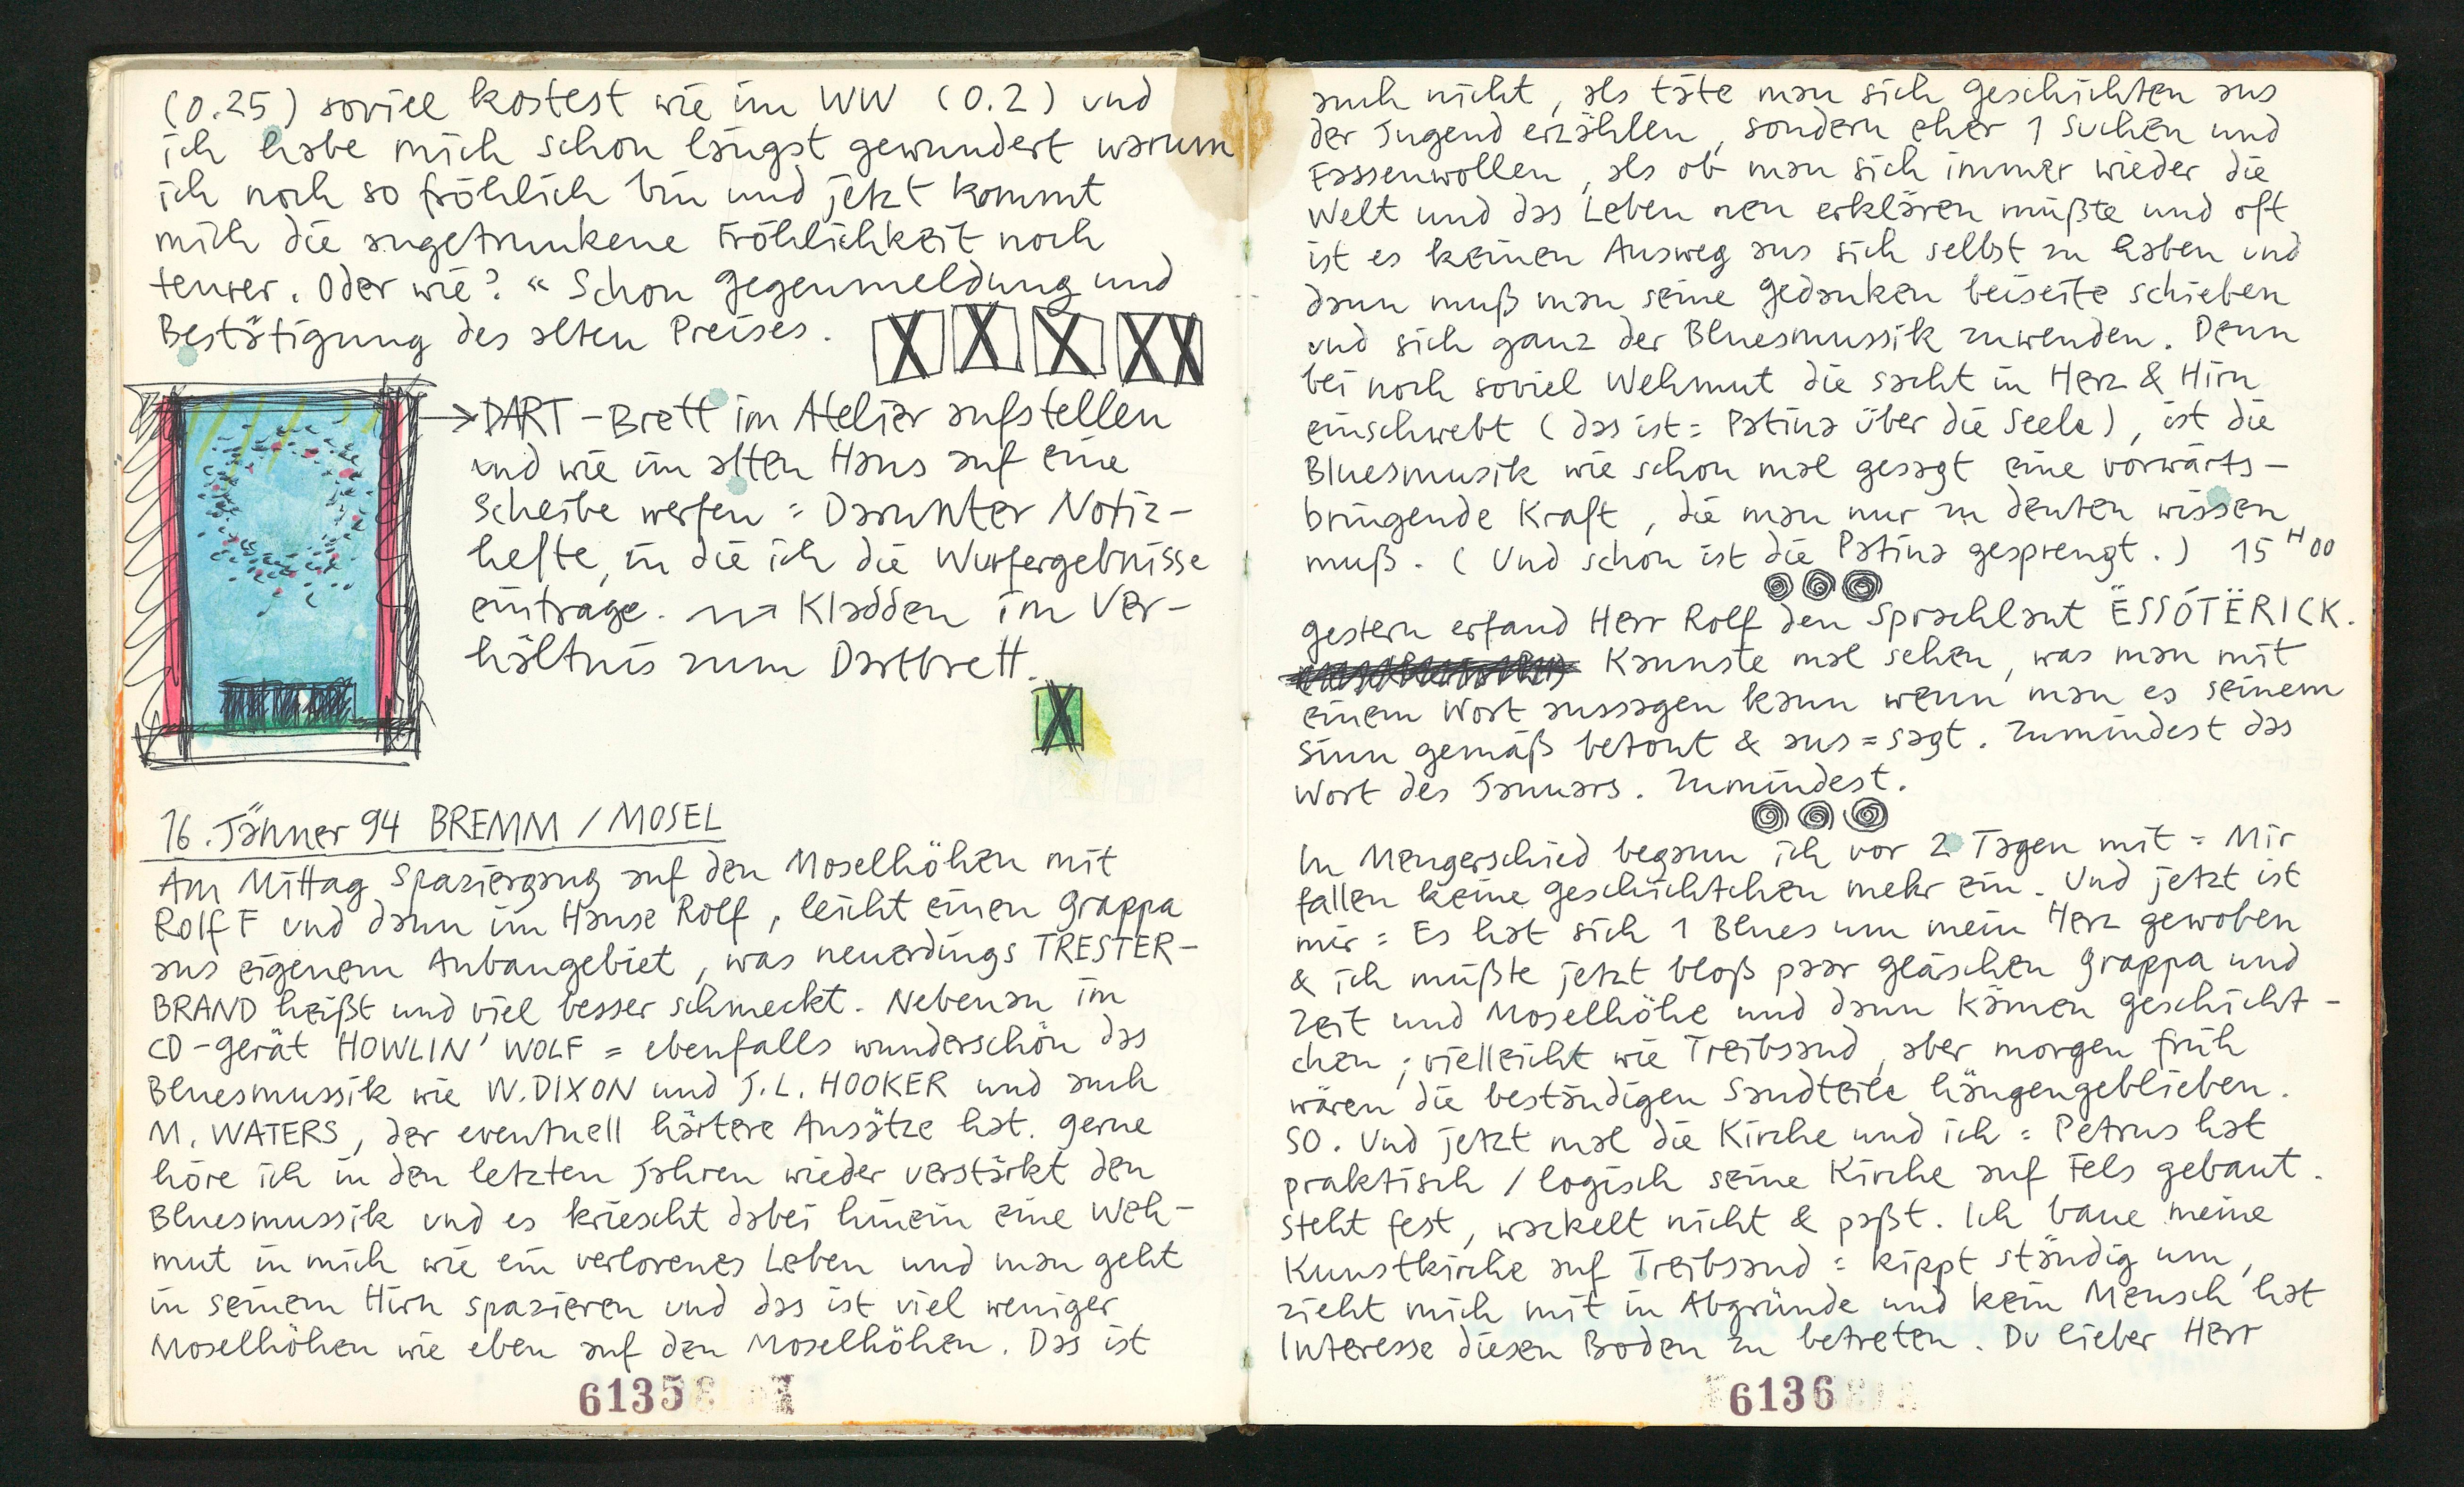 (0.25) soviel kostest wie im WW (0.2) und
ich habe mich schon längst gewundert warum
ich noch so fröhlich bin und jetzt kommt
mich die angetrunkene Fröhlichkeit noch
teurer. Oder wie? « Schon Gegenmeldung und
Bestätigung des alten Preises.
X X X XX
→ DART - Brett im Atelier aufstellen
und wie im alten Haus auf eine
Scheibe werfen = Darunter Notiz-
hefte, in die ich die Wurfergebnisse
eintrage. Kladden im Ver-
hältnis zum Dartbrett.
X
16. Jänner 94 BREMM / MOSEL
Am Mittag Spaziergang auf den Moselhöhen mit
Rolf F und dann im Hause Rolf, leicht einen Grappa
aus eigenem Anbaugebiet, was neuerdings TRESTER-
BRAND heißt und viel besser schmeckt. Nebenan im
CD-Gerät HOWLIN' WOLF = ebenfalls wunderschön das
Bluesmussik wie W. DIXON und J.L. HOOKER und auch
M. WATERS, der eventuell härtere Ansätze hat. Gerne
höre ich in den letzten Jahren wieder verstärkt den
Bluesmussik und es kriescht dabei hinein eine Weh-
mut in mich wie ein verlorenes Leben und man geht
in seinem Hirn spazieren und das ist viel weniger
Moselhöhen wie eben auf den Moselhöhen. Das ist
6135
auch nicht, als täte man sich Geschichten aus
der Jugend erzählen, sondern eher 1 Suchen und
Fassenwollen, als ob man sich immer wieder die
Welt und das Leben neu erklären müßte und oft
ist es keinen Ausweg aus sich selbst zu haben und
dann muß man seine Gedanken beiseite schieben
und sich ganz der Bluesmussik zuwenden. Denn
bei noch soviel Wehmut die sacht in Herz & Hirn
einschwebt (das ist = Patina über die Seele), ist die
Bluesmusik wie schon mal gesagt eine vorwärts-
bringende Kraft, die man nur zu deuten wissen
muß. (Und schon ist die Patina gesprengt.) 15 H 00
gestern erfand Herr Rolf den Sprachlaut ËSSÓTËRICK.
Kannste mal sehen, was man mit
einem Wort aussagen kann wenn man es seinem
Sinn gemäß betont & aus=sagt. Zumindest das
Wort des Januars. Zumindest.
In Mengerschied begann ich vor 2 Tagen mit = Mir
fallen keine Geschichtchen mehr ein. Und jetzt ist
mir = Es hat sich 1 Blues um mein Herz gewoben
& ich müßte jetzt bloß paar Gläschen Grappa und
Zeit und Moselhöhe und dann kämen Geschicht-
chen; vielleicht wie Treibsand, aber morgen früh
wären die beständigen Sandteile hängengeblieben.
SO. Und jetzt mal die Kirche und ich = Petrus hat
praktisch / logisch seine Kirche auf Fels gebaut.
Steht fest, wackelt nicht & paßt. Ich baue meine
Kunstkirche auf Treibsand = kippt ständig um,
zieht mich mit in Abgründe und kein Mensch hat
Interesse diesen Boden zu betreten. Du lieber Herr
6136